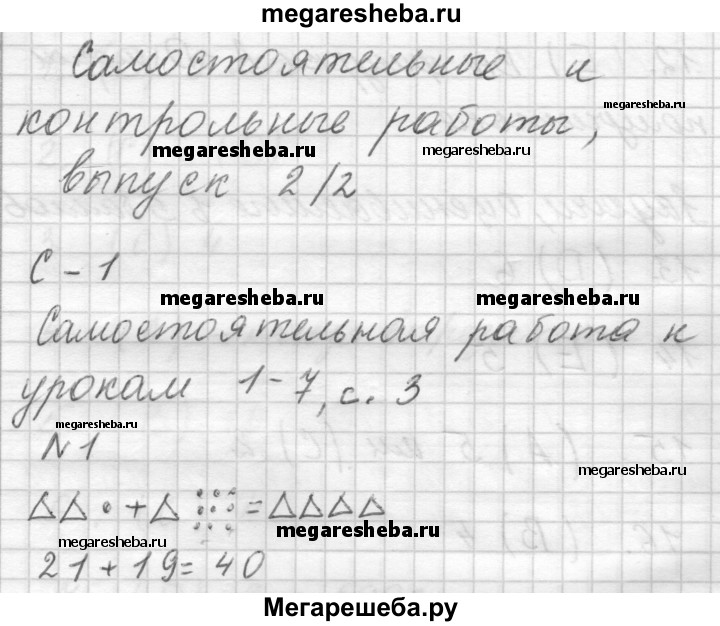 megaresheba.ru
Самостоятельные и
megaresheba.ru
контрольные работы,
megaresheba.ru
megaresheba.ru
выпуск 2/2
С - 1
megaresheba.ru
megaresheba.ru
Самостоятельная работа к
урокам 1-7, с. 3
megaresheba.ru
N 1
megaresheba.ru
△△• + △ ••••••••• = △△△△
megaresheba.ru
megaresheba.ru
21 + 19 = 40
Мегарешеба.ру